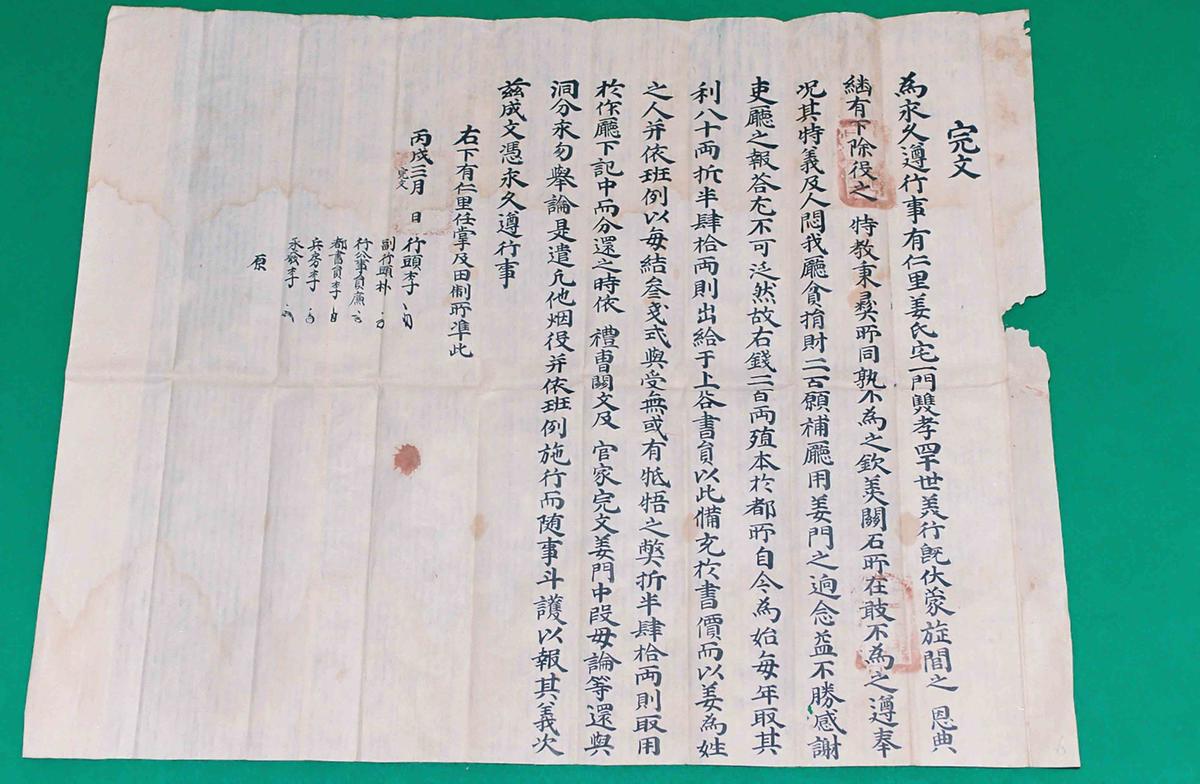 完文
為永久遵行事有仁里姜氏宅一門雙孝四世義行旣伏蒙旌閭之 恩典
繼有下除役之 特教秉彛所同孰不為之欽羨關石所在敢不為之遵奉
况其特義及人悶我廳貧捐財二百願補廳用姜門之逈念益不勝感謝
吏廳之報答尤不可泛然故右錢二百両殖本於都所自今為始每年取其
利八十両折半肆拾両則出給于上谷書員以此備充於書價而以姜為姓
之人并依班例以每結叁戔式與受無或有牴牾之弊折半肆拾両則取用
於作廳下記中而分還之時依 禮曹關文及 官家完文姜門中段毋論等還與
洞分永勿擧論是遣凡他烟役并依班例施行而随事斗護以報其義次
玆成文憑永久遵行事
右下有仁里任掌及田制所準此
丙戌三月 日 行頭李
完文
副行頭朴
行公事員廉
都書員李
兵房李
承發李
原